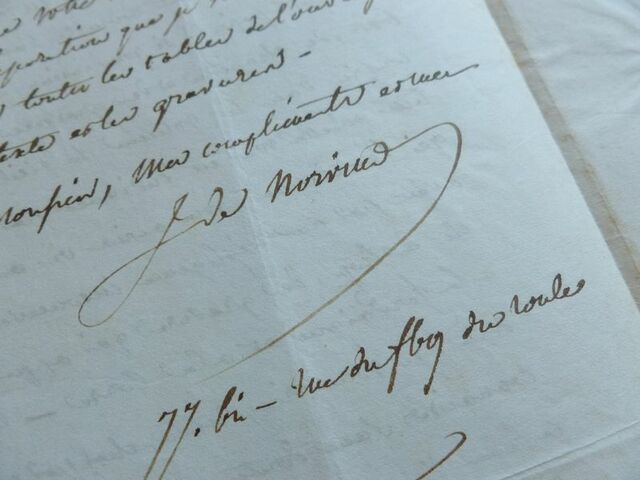 votre
que je
toutes les tables de l'ouv
texte et les gravures -
monsieur, mes compliments et mes
J. de Norvins
77. bis - rue du fbg du roule